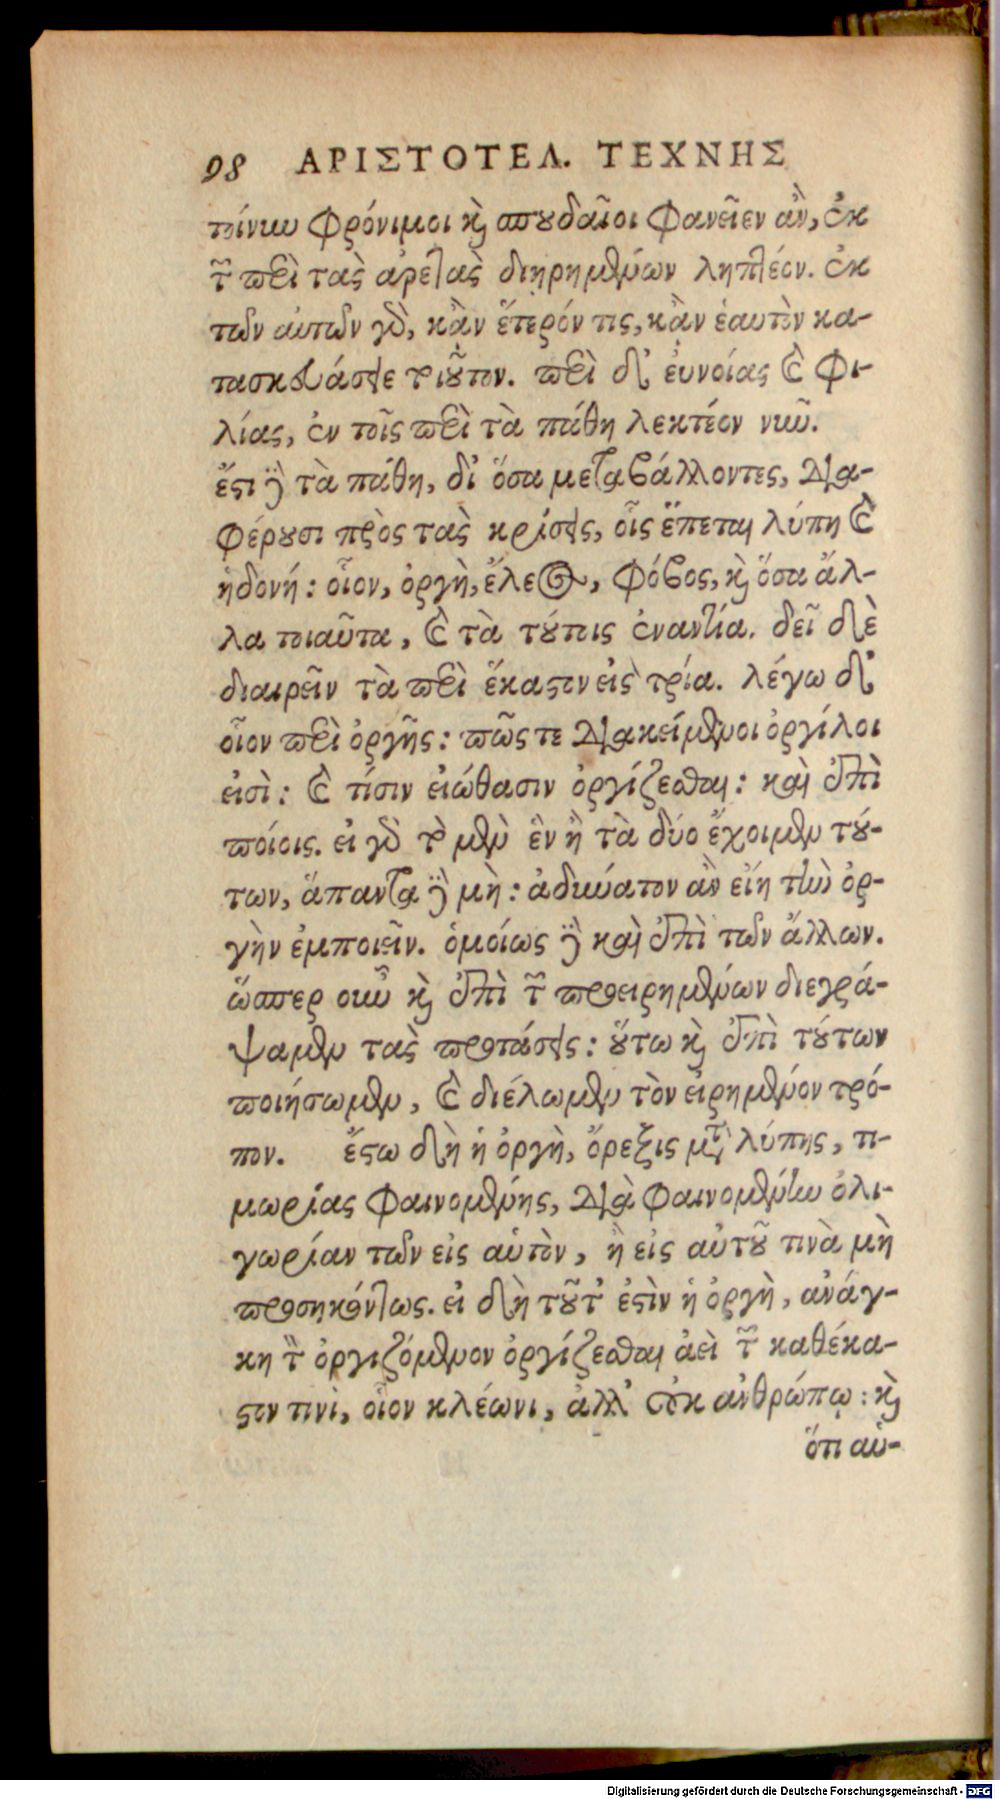 98 ΑΡΙΣΤΟΤΕΛ. ΤΕΧΝΗΣ
τοίνυν φρόνιμοι καὶ σπουδαῖοι φανεῖεν ἂν, ἐκ
τῶν περὶ τὰς ἀρετὰς διῃρημένων ληπτέον. ἐκ
τῶν αὐτῶν γὰρ, κἂν ἕτερόν τις, κἂν ἑαυτὸν κα-
τασκευάσειε τοιοῦτον. περὶ δ' εὐνοίας καὶ φι-
λίας, ἐν τοῖς περὶ τὰ πάθη λεκτέον νῦν.
ἔστι δὲ τὰ πάθη, δι' ὅσα μεταβάλλοντες, δια-
φέρουσι πρὸς τὰς κρίσεις, οἷς ἕπεται λύπη καὶ
ἡδονή: οἷον, ὀργὴ, ἔλεος, φόβος, καὶ ὅσα ἄλ-
λα τοιαῦτα, καὶ τὰ τούτοις ἐναντία. δεῖ δὲ
διαιρεῖν τὰ περὶ ἕκαστον εἰς τρία. λέγω δ'
οἷον περὶ ὀργῆς: πῶς τε διακείμενοι ὀργίλοι
εἰσὶ: καὶ τίσιν εἰώθασιν ὀργίζεσθαι: καὶ ἐπὶ
ποίοις. εἰ γὰρ τὸ μὲν ἓν ἢ τὰ δύο ἔχοιμεν τού-
των, ἅπαντα δὲ μὴ: ἀδύνατον ἂν εἴη τὴν ὀρ-
γὴν ἐμποιεῖν. ὁμοίως δὲ καὶ ἐπὶ τῶν ἄλλων.
ὥσπερ οὖν καὶ ἐπὶ τῶν προειρημένων διεγρά-
ψαμεν τὰς προτάσεις: οὕτω καὶ ἐπὶ τούτων
ποιήσωμεν, καὶ διέλωμεν τὸν εἰρημένον τρό-
πον. ἔστω δὴ ἡ ὀργὴ, ὄρεξις μετὰ λύπης, τι-
μωρίας φαινομένης, διὰ φαινομένην ὀλι-
γωρίαν τῶν εἰς αὑτὸν, ἢ εἰς αὑτοῦ τινὰ μὴ
προσηκόντως. εἰ δὴ τοῦτ' ἐστὶν ἡ ὀργὴ, ἀνάγ-
κη τὸν ὀργιζόμενον ὀργίζεσθαι ἀεὶ τῶν καθέκα-
στον τινὶ, οἷον κλέωνι, ἀλλ' οὐκ ἀνθρώπῳ: καὶ
ὅτι αὑ-
Digitalisierung gefördert durch die Deutsche Forschungsgemeinschaft - DFG